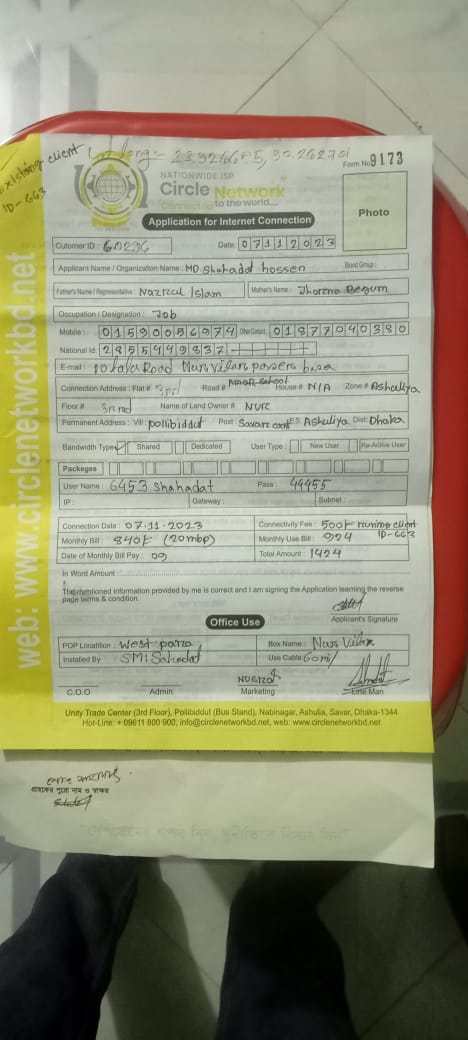 Existing client
ID-663
Lat/long:- 23.926685, 90.262701
Form No 9173
NATIONWIDE ISP
Circle Network
Connected to the world....
Application for Internet Connection
Photo
Cutomer ID : 60296
Date: 07112023
Applicant Name / Organization Name : MD. Shahadat hossen
Blood Group :
Father's Name / Representative : Nazrul Islam
Mother's Name : Jhorena Begum
Occupation / Designation : Job
Mobile : 01590056974 Other Contact : 01877040380
National Id: 2855449837
E-mail : 10 tala Road Nurs villan passers basa
Connection Address : Flat # 3rd Road # Navar school House # N/A Zone # Ashuliya
Floor # 3rd Name of Land Owner # NUR
Permanent Address : Vill: pollibiddut Post : Savar cant P.S. Ashuliya Dist: Dhaka
Bandwidth Type Shared Dedicated User Type : New User Re-Active User
Packeges
User Name : 6453 Shahadat Pass : 44455
IP : Gateway : Subnet :
Connection Date : 07-11-2023 Connectivity Fee : 500৳ running client
Monthly Bill : 840৳ (20mbp) Monthly Use Bill : 924 ID-663
Date of Monthly Bill Pay : 09 Total Amount : 1424
In Word Amount
The mentioned information provided by me is correct and I am signing the Application learning the reverse
page terms & condition.
Applicant's Signature
Office Use
POP Locatition : West parza Box Name : Nur Villa
Installed By : SMI Sahadat Use Cable 60mi/
C.O.O Admin Marketing Line Man
Unity Trade Center (3rd Floor), Pollibiddut (Bus Stand), Nabinagar, Ashulia, Savar, Dhaka-1344
Hot-Line: + 09611 800 900, info@circlenetworkbd.net, web: www.circlenetworkbd.net
web: www.circlenetworkbd.net
গ্রাহকের পুরো নাম ও স্বাক্ষর